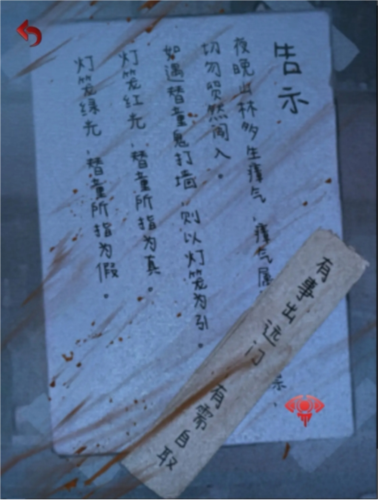 告示
夜晚山林多生瘴气，瘴气
切勿贸然闯入。
如遇替童鬼打墙，则以灯笼为引。
灯笼红光，替童所指为真。
灯笼绿光，替童所指为假。
有事出远门 有需自取